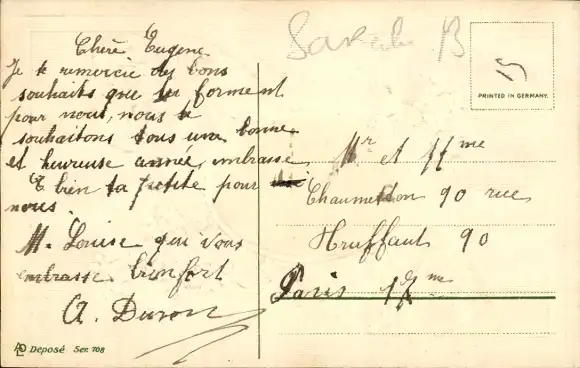 Chère Eugene
Je te remercie des bons
souhaits que tu forment
pour nous, nous te
souhaitons tous une bonne
et heureuse année, embrasse
bien ta petite pour
nous.
M. Louise qui vous
embrasse bien fort
A. Duron
PRINTED IN GERMANY.
Mr et Mme
Chaumetton 90 rue
Truffaut 90
Paris 17me
Deposé Ser. 708